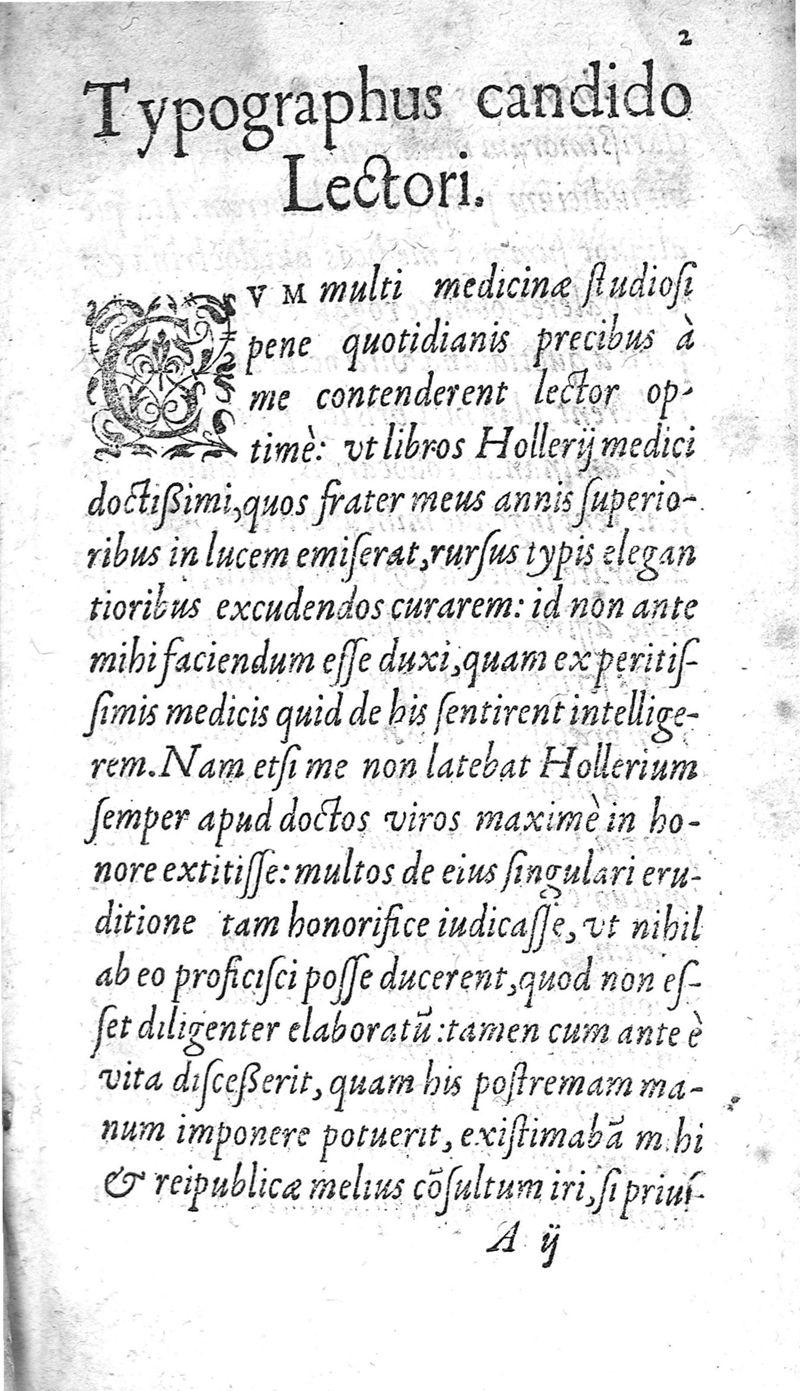 2
Typographus candido
Lectori.
CVM multi medicinæ ſtudioſi
pene quotidianis precibus à
me contenderent lector op-
timè: vt libros Hollerij medici
doctißimi, quos frater meus annis ſuperio-
ribus in lucem emiſerat, rurſus typis elegan
tioribus excudendos curarem: id non ante
mihi faciendum eſſe duxi, quam ex peritiſ-
ſimis medicis quid de his ſentirent intellige-
rem. Nam etſi me non latebat Hollerium
ſemper apud doctos viros maximè in ho-
nore extitiſſe: multos de eius ſingulari eru-
ditione tam honorifice iudicaſſe, vt nihil
ab eo proficiſci poſſe ducerent, quod non eſ-
ſet diligenter elaboratũ: tamen cum ante è
vita diſceßerit, quam his poſtremam ma-
num imponere potuerit, exiſtimabã m hi
& reipublicæ melius cõſultum iri, ſi priuſ-
A ij